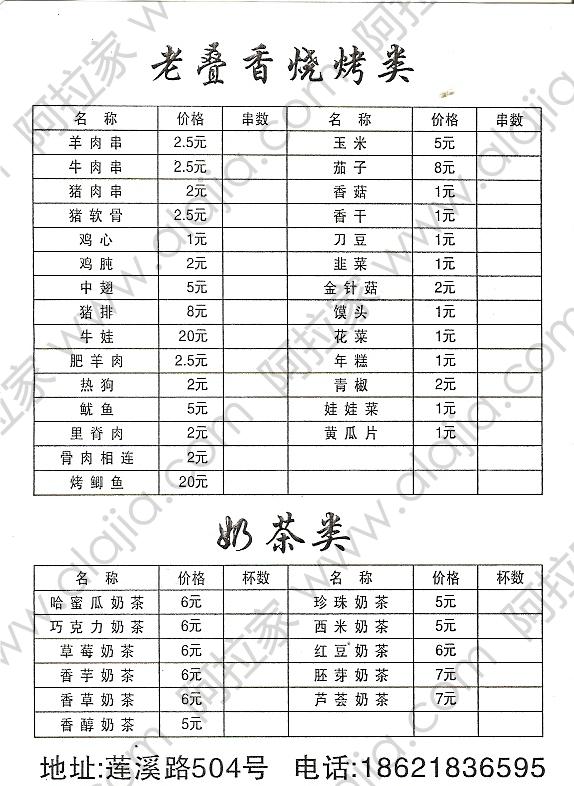 老叠香烧烤类
名称 价格 串数 名称 价格 串数
羊肉串 2.5元 玉米 5元
牛肉串 2.5元 茄子 8元
猪肉串 2元 香菇 1元
猪软骨 2.5元 香干 1元
鸡心 1元 刀豆 1元
鸡肫 2元 韭菜 1元
中翅 5元 金针菇 2元
猪排 8元 馍头 1元
牛娃 20元 花菜 1元
肥羊肉 2.5元 年糕 1元
热狗 2元 青椒 2元
鱿鱼 5元 娃娃菜 1元
里脊肉 2元 黄瓜片 1元
骨肉相连 2元
烤鲫鱼 20元
奶茶类
名称 价格 杯数 名称 价格 杯数
哈蜜瓜奶茶 6元 珍珠奶茶 5元
巧克力奶茶 6元 西米奶茶 5元
草莓奶茶 6元 红豆奶茶 6元
香芋奶茶 6元 胚芽奶茶 7元
香草奶茶 6元 芦荟奶茶 7元
香醇奶茶 5元
地址:莲溪路504号 电话:18621836595
阿拉家 www.alajia.com